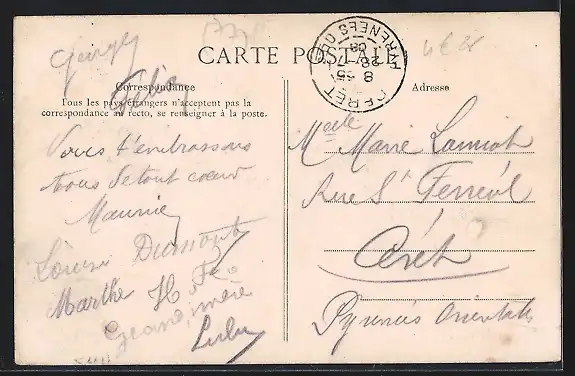 CARTE POSTALE
Correspondance
Tous les pays étrangers n'acceptent pas la
correspondance au recto, se renseigner à la poste.
Georges
Félix
Vous t'embrassons
tous de tout cœur
Maurice
Louise Dumont
Marthe H
Grand'mère
Lulu
CERET
8 45
28
08
PYRÉNÉES
Adresse
Melle Marie
Rue St Ferréol
Céret
Pyrénées Orientales